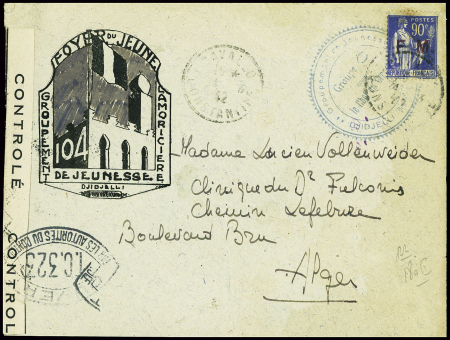 FOYER DU JEUNE
GROUPEMENT
LAMORICIERE
104
DE JEUNESSE
DJIDJELLI
CONTROLÉ
CONTROL
POSTES
90c
F M
DJIDJELLI
Groupement
Madame Lucien Vollenweider
Clinique du Dr Falconis
Chemin Lefebvre
Boulevard Bru
Alger
LES AUTORITÉS DU CON
T.C.323